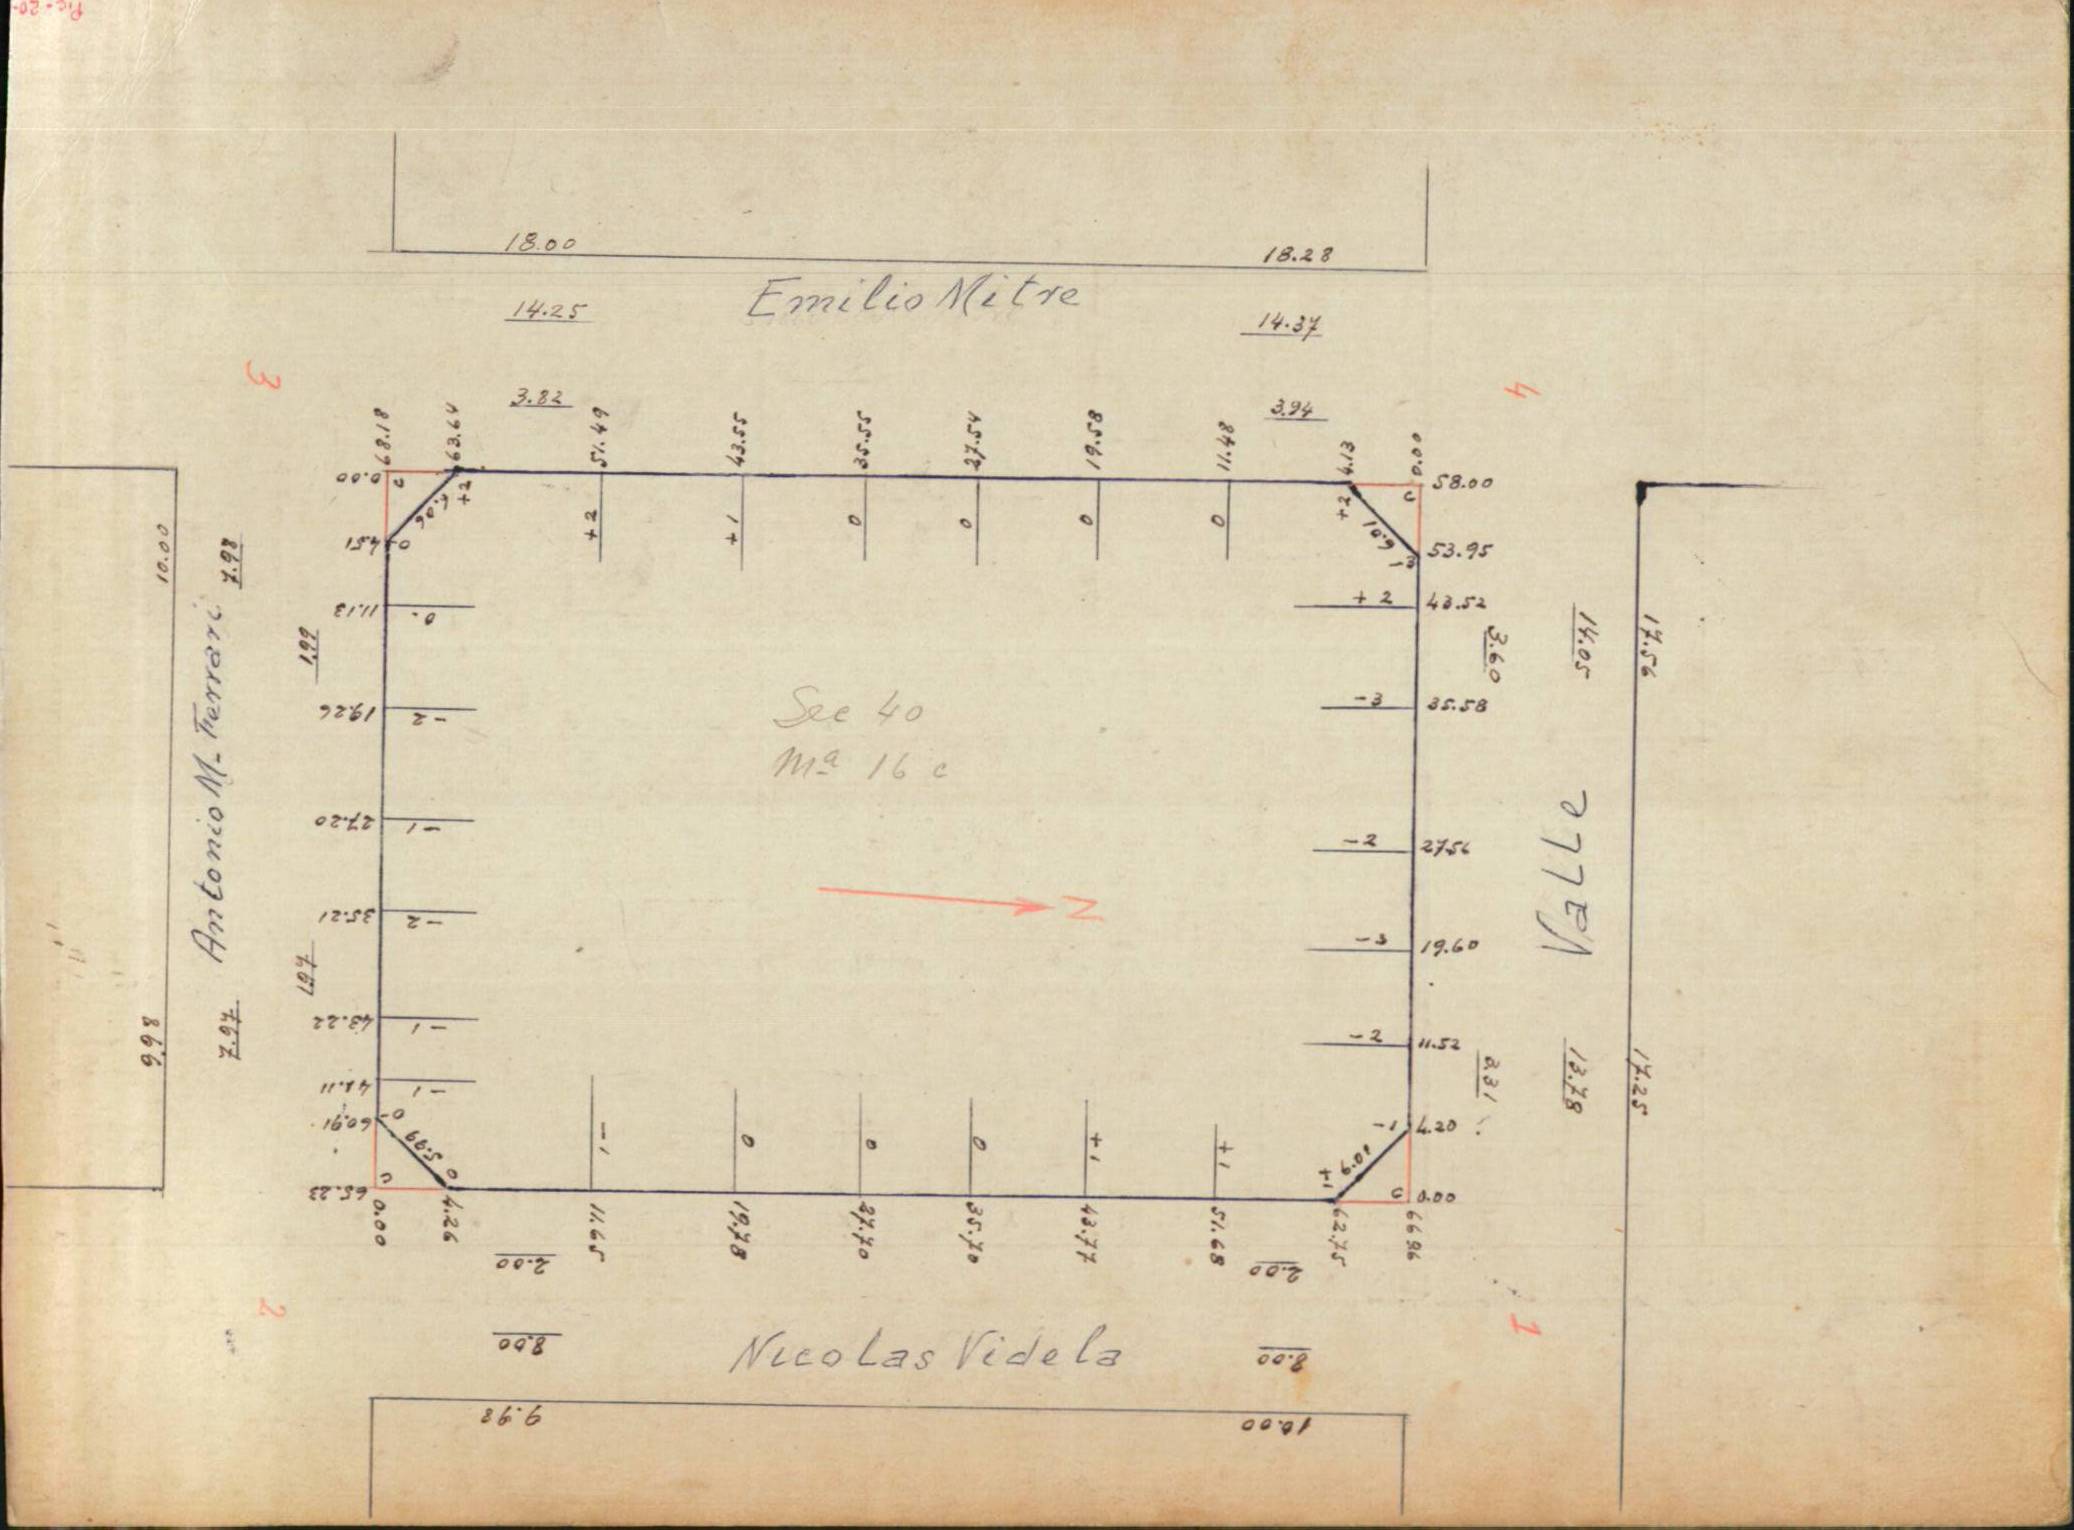 18.00
18.28
Emilio Mitre
14.25
14.37
3
4
3.82
3.94
68.18
63.64
51.49
43.55
35.55
27.54
19.58
11.48
4.13
0.00
0.00
c
+2
6.06
+2
+1
0
0
0
0
+2
6.01
c
58.00
4.51
0
53.95
11.13
0
+2
43.52
10.00
7.98
1.99
3.60
14.05
17.56
19.26
-2
-3
35.58
Antonio M. Ferrari
Sec 40
Mª 16 c
Valle
27.20
-1
-2
27.56
N
35.21
-2
-3
19.60
1.97
43.22
-1
-2
11.52
9.98
7.97
3.31
13.78
17.25
-1
60.91
0
5.99
0
-1
0
0
0
+1
+1
+1
6.01
-1
4.20
65.23
c
c
0.00
0.00
4.26
11.65
19.78
27.70
35.70
43.77
51.68
62.75
66.96
2.00
2.00
2
1
8.00
Nicolas Videla
8.00
9.98
10.00